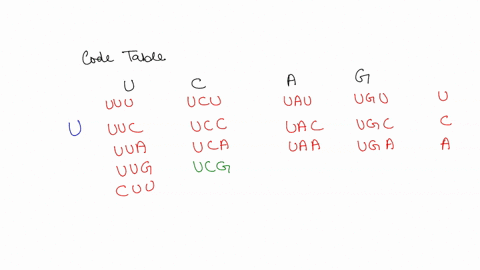 Code Table
U C A G
UUU UCU UAU UGU U
U UUC UCC UAC UGC C
UUA UCA UAA UGA A
UUG UCG
CUU